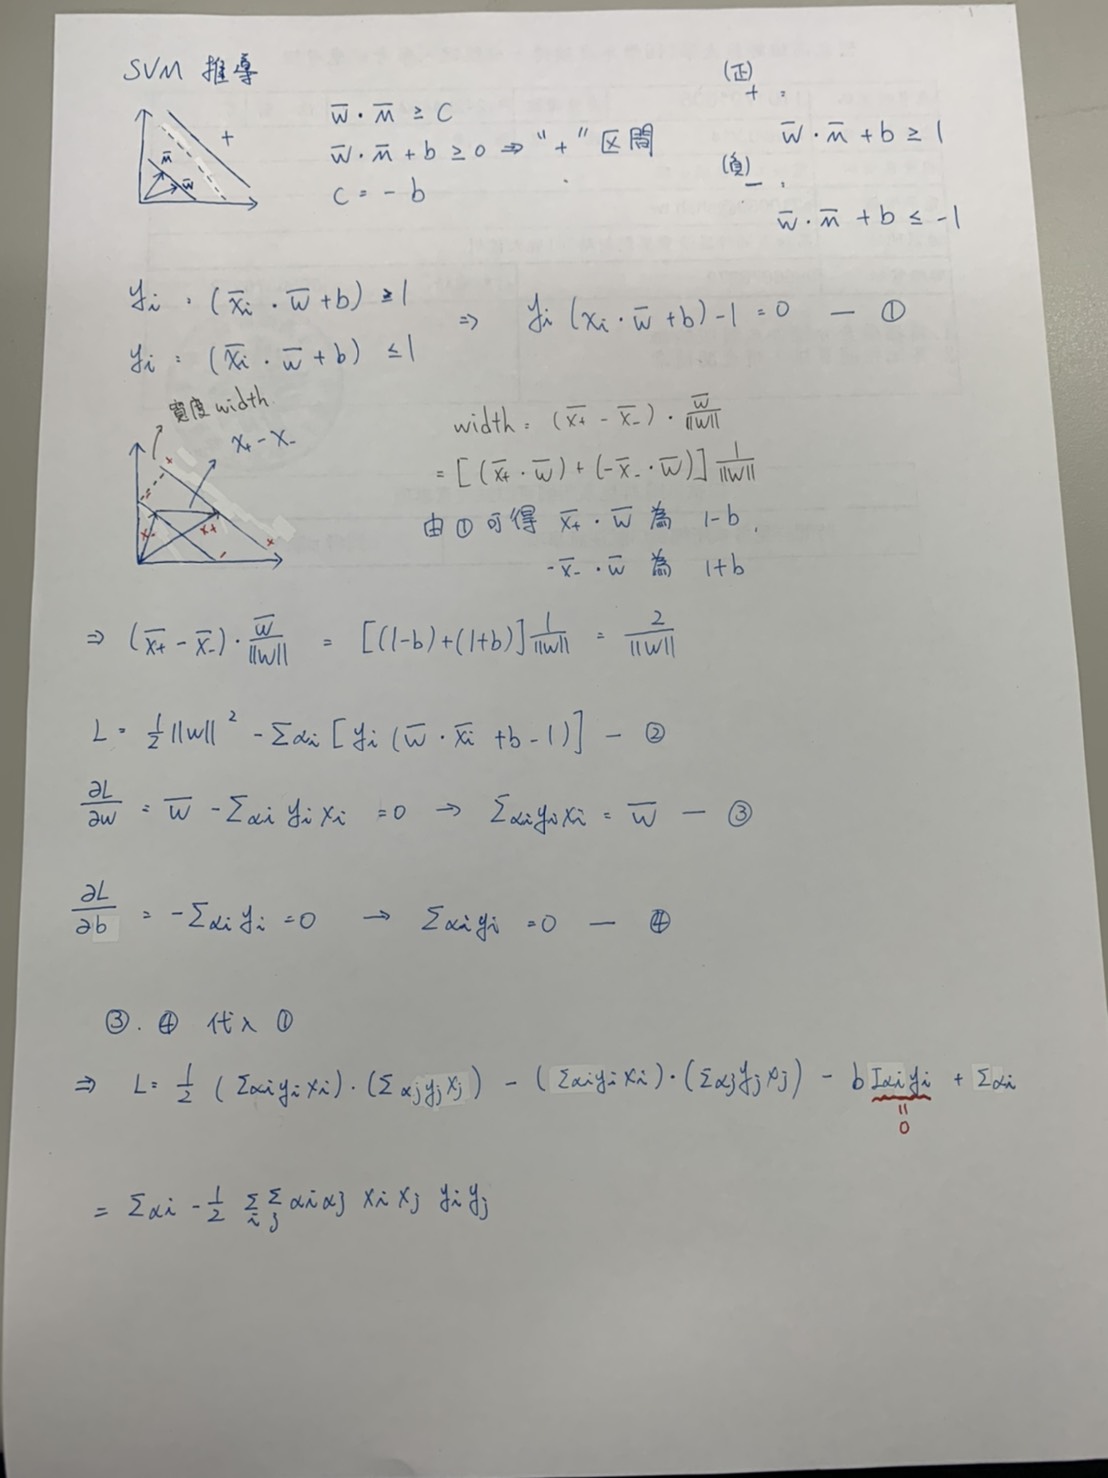 SVM 推導
+
m̅
w̅
w̅ · m̅ ≥ C
w̅ · m̅ + b ≥ 0 ⇒ "+" 区間
C = - b
(正)
+ :
w̅ · m̅ + b ≥ 1
(負)
- :
w̅ · m̅ + b ≤ -1
yi : (x̅i · w̅ + b) ≥ 1
yi : (x̅i · w̅ + b) ≤ 1
⇒ yi (xi · w̅ + b) - 1 = 0 — ①
寬度 width
x+ - x-
x-
x+
width = (x̅+ - x̅-) · w̅/||w||
= [(x̅+ · w̅) + (-x̅- · w̅)] 1/||w||
由 ① 可得 x̅+ · w̅ 為 1-b,
-x̅- · w̅ 為 1+b
⇒ (x̅+ - x̅-) · w̅/||w|| = [(1-b)+(1+b)] 1/||w|| = 2/||w||
L = 1/2 ||w||² - Σαi [yi (w̅ · x̅i + b - 1)] — ②
∂L/∂w = w̅ - Σαi yi xi = 0 → Σαi yi xi = w̅ — ③
∂L/∂b = - Σαi yi = 0 → Σαi yi = 0 — ④
③. ④ 代入 ①
⇒ L = 1/2 (Σαi yi xi) · (Σ αj yj xj) - (Σαi yi xi) · (Σαj yj xj) - b Σαi yi + Σαi
=
0
= Σαi - 1/2 Σi Σj αi αj xi xj yi yj